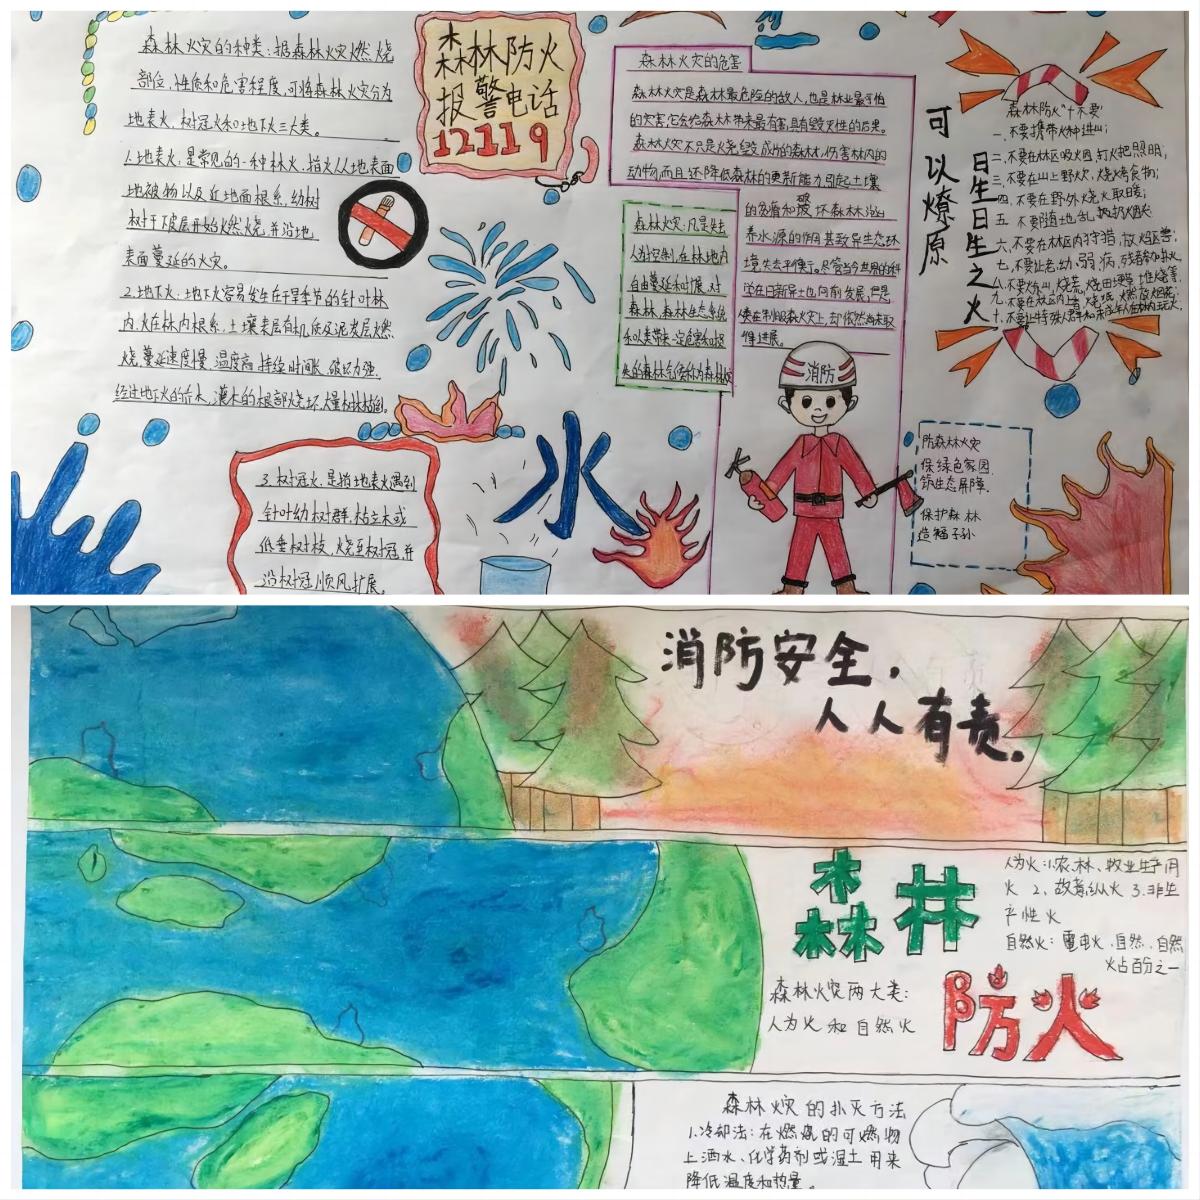 森林火灾的种类:据森林火灾燃烧
部位,性质和危害程度,可将森林火灾分为
地表火,树冠火和地下火三大类。
1.地表火:是常见的一种林火,指火从地表面
地被物以及近地面根系,幼树
树干下皮层开始燃烧,并沿地
表面蔓延的火灾。
2.地下火:地下火容易发生在干旱季节的针叶林
内,火在林内根系,土壤表层有机质及泥炭层燃
烧,蔓延速度慢,温度高,持续时间长,破坏力强
经过地下火的乔木,灌木的根部烧坏,大量树木枯倒。
3.树冠火,是指地表火遇到
针叶幼树群,枯立木或
低垂树枝,烧至树冠,并
沿树冠顺风扩展。
森林防火
报警电话
12119
水
森林火灾的危害
森林火灾是森林最危险的敌人,也是林业最可怕
的灾害,它会给森林带来最有害,具有毁灭性的后果。
森林火灾不只是烧毁成片的森林,伤害林内的
动物,而且还降低森林的更新能力,引起土壤
的贫瘠和破坏森林涵
养水源的作用,甚至导致生态环
境失去平衡。尽管当今世界的科
学在日新月异地向前发展,但是
森林火灾:凡是失去
人为控制,在林地内
自由蔓延和扩展,对
森林,森林生态系统
和人类带来一定危害和损
消防
可以燎原
日生日生之火
森林防火"十不要"
一、不要携带火种进山;
二、不要在林区吸火烟,打火把照明;
三、不要在山上野炊,烧烤食物;
四、不要在野外烧火取暖;
五、不要随地乱扔烟头
六、不要在林区内狩猎,放火驱兽;
防森林火灾
保绿色家园
筑生态屏障.
保护森林
造福子孙
消防安全,
人人有责。
森林
防火
人为火:1.农、林、牧业生产用
火 2、故意纵火 3.非生
产性火
自然火:雷电火、自然、自然
火占百分之一
森林火灾两大类:
人为火和自然火
森林火灾的扑灭方法
1.冷却法:在燃烧的可燃物
上洒水、化学药剂或湿土用来
降低温度和热量。